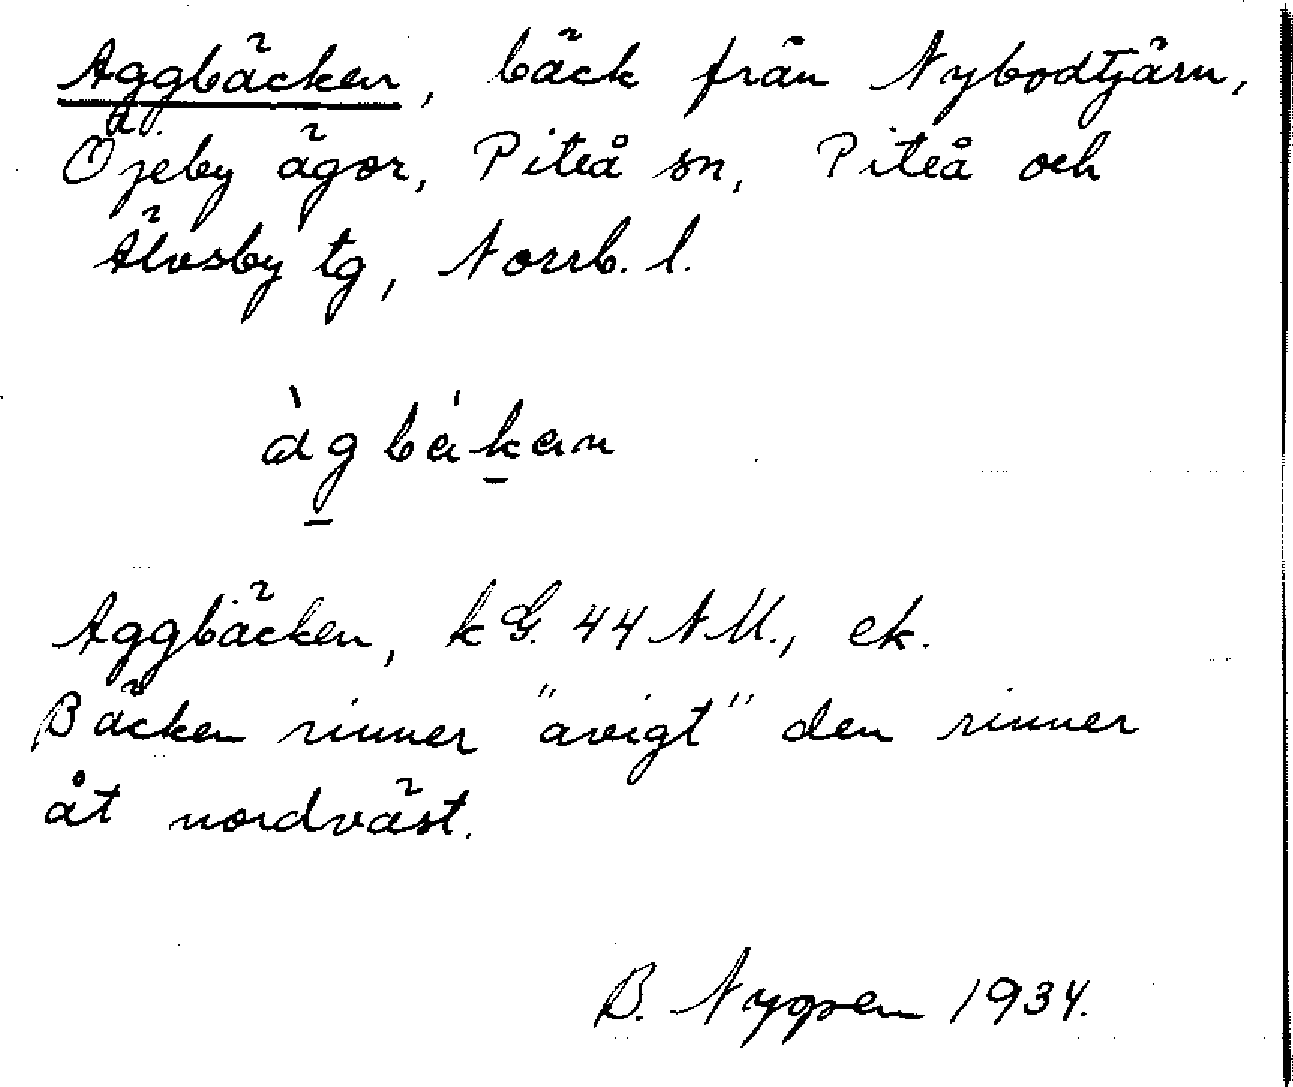 Aggbäcken, bäck från Nybodtjärn,
Öjeby ägor, Piteå sn, Piteå och
Älvsby tg, Norrb. l.
àgbákan
Aggbäcken, kG. 44 NM., ek.
Bäcken rinner "avigt" den rinner
åt nordväst.
B. Nygren 1934.